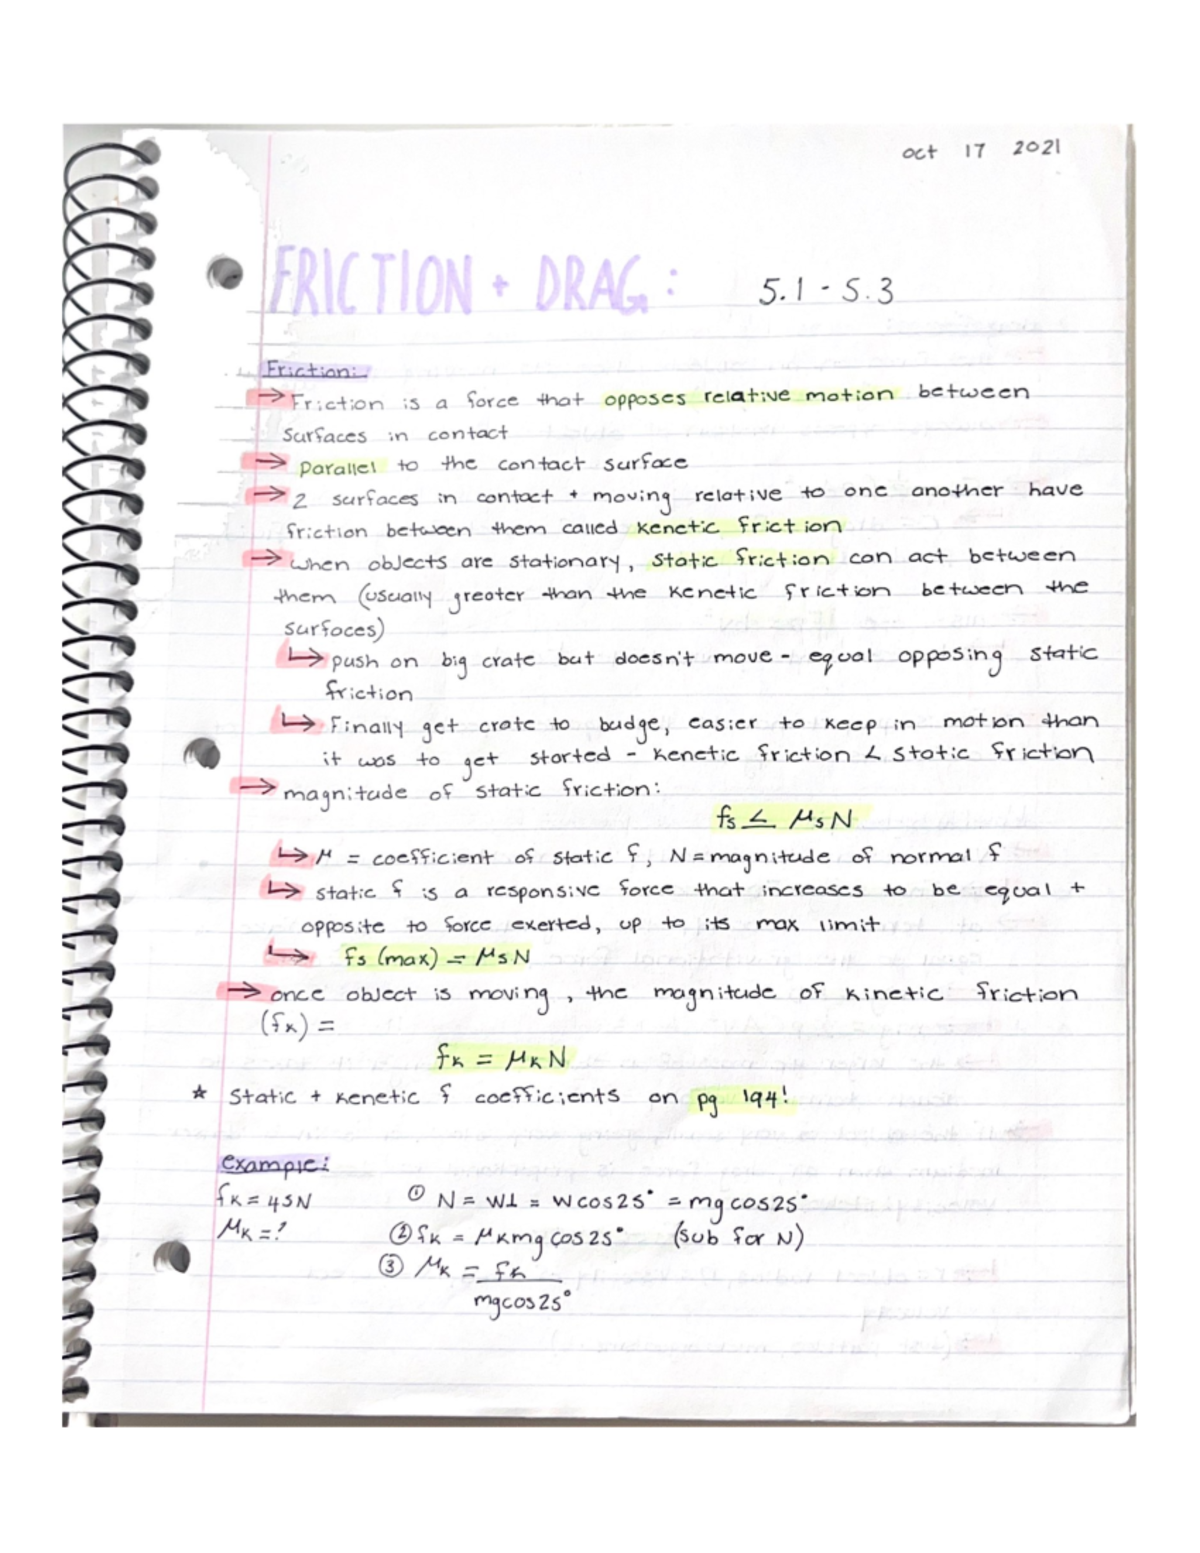 oct 17 2021
FRICTION + DRAG: 5.1 - 5.3
Friction:
→ Friction is a force that opposes relative motion between
surfaces in contact
→ parallel to the contact surface
→ 2 surfaces in contact + moving relative to one another have
friction between them called kenetic friction
→ when objects are stationary, static friction can act between
them (usually greater than the kenetic friction between the
surfaces)
↳ push on big crate but doesn't move - equal opposing static
friction
↳ Finally get crate to budge, easier to keep in motion than
it was to get started - kenetic friction < static friction
→ magnitude of static friction:
fs ≤ μsN
↳ μ = coefficient of static f, N = magnitude of normal f
↳ static f is a responsive force that increases to be equal +
opposite to force exerted, up to its max limit
↳ fs (max) = μsN
→ once object is moving, the magnitude of kinetic friction
(fk) =
fk = μkN
☆ Static + kenetic f coefficients on pg 194!
example:
fk = 45N ① N = W⊥ = Wcos25° = mgcos25°
μk = ? ② fk = μkmgcos25° (sub for N)
③ μk = fk
mgcos25°